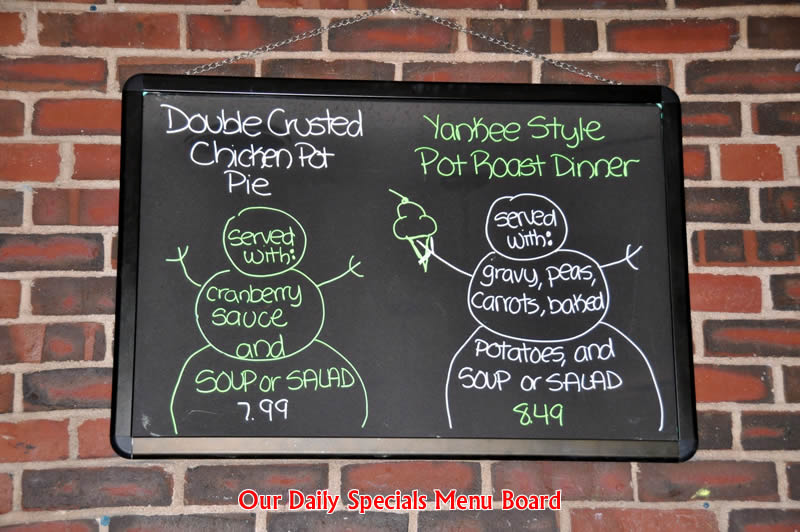 Double Crusted
Chicken Pot
Pie
served
with:
cranberry
sauce
and
SOUP or SALAD
7.99
Yankee Style
Pot Roast Dinner
served
with:
gravy, peas,
carrots, baked
potatoes, and
SOUP or SALAD
8.49
Our Daily Specials Menu Board